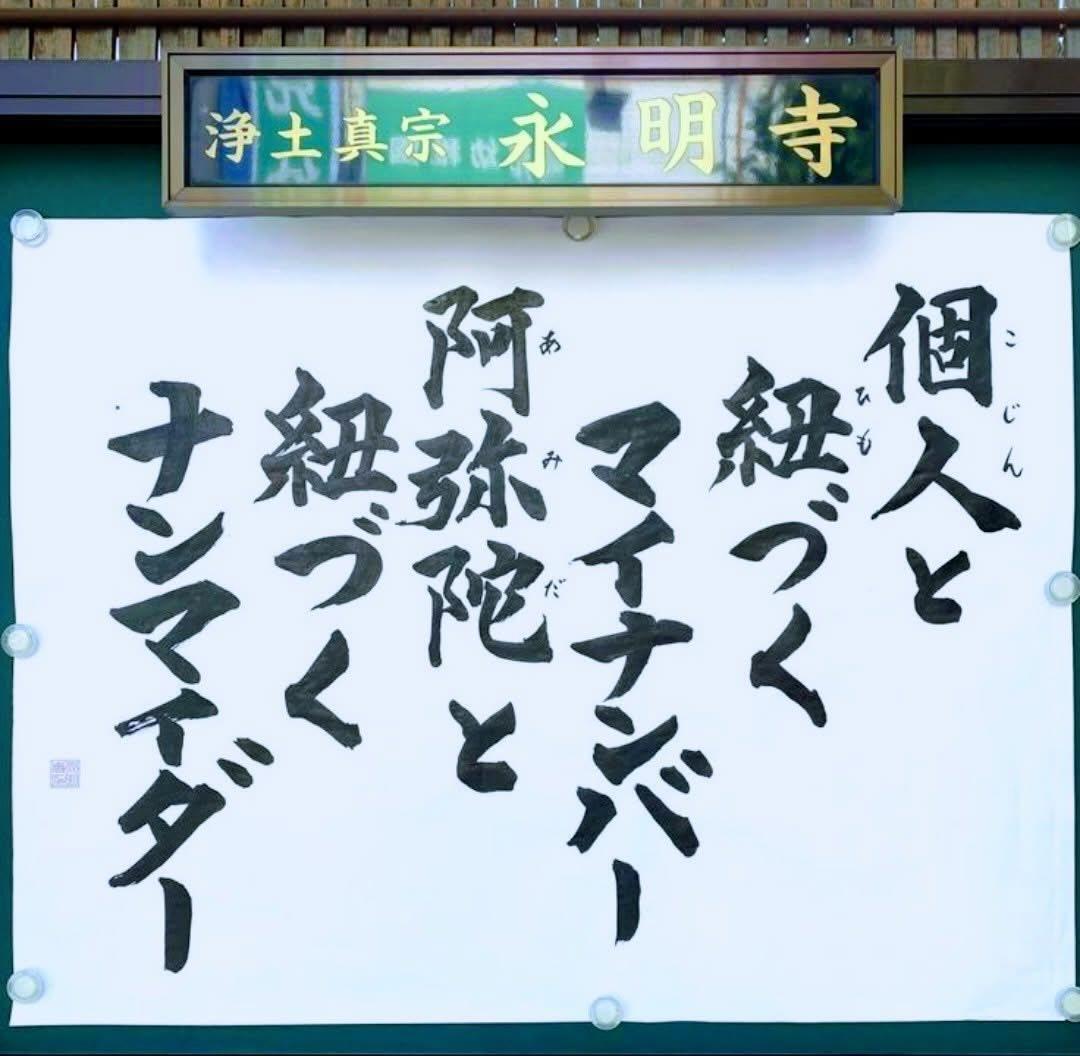 浄土真宗 永明寺
個人と
紐づく
マイナンバー
阿弥陀と
紐づく
ナンマイダー
こじん
ひも
あみだ